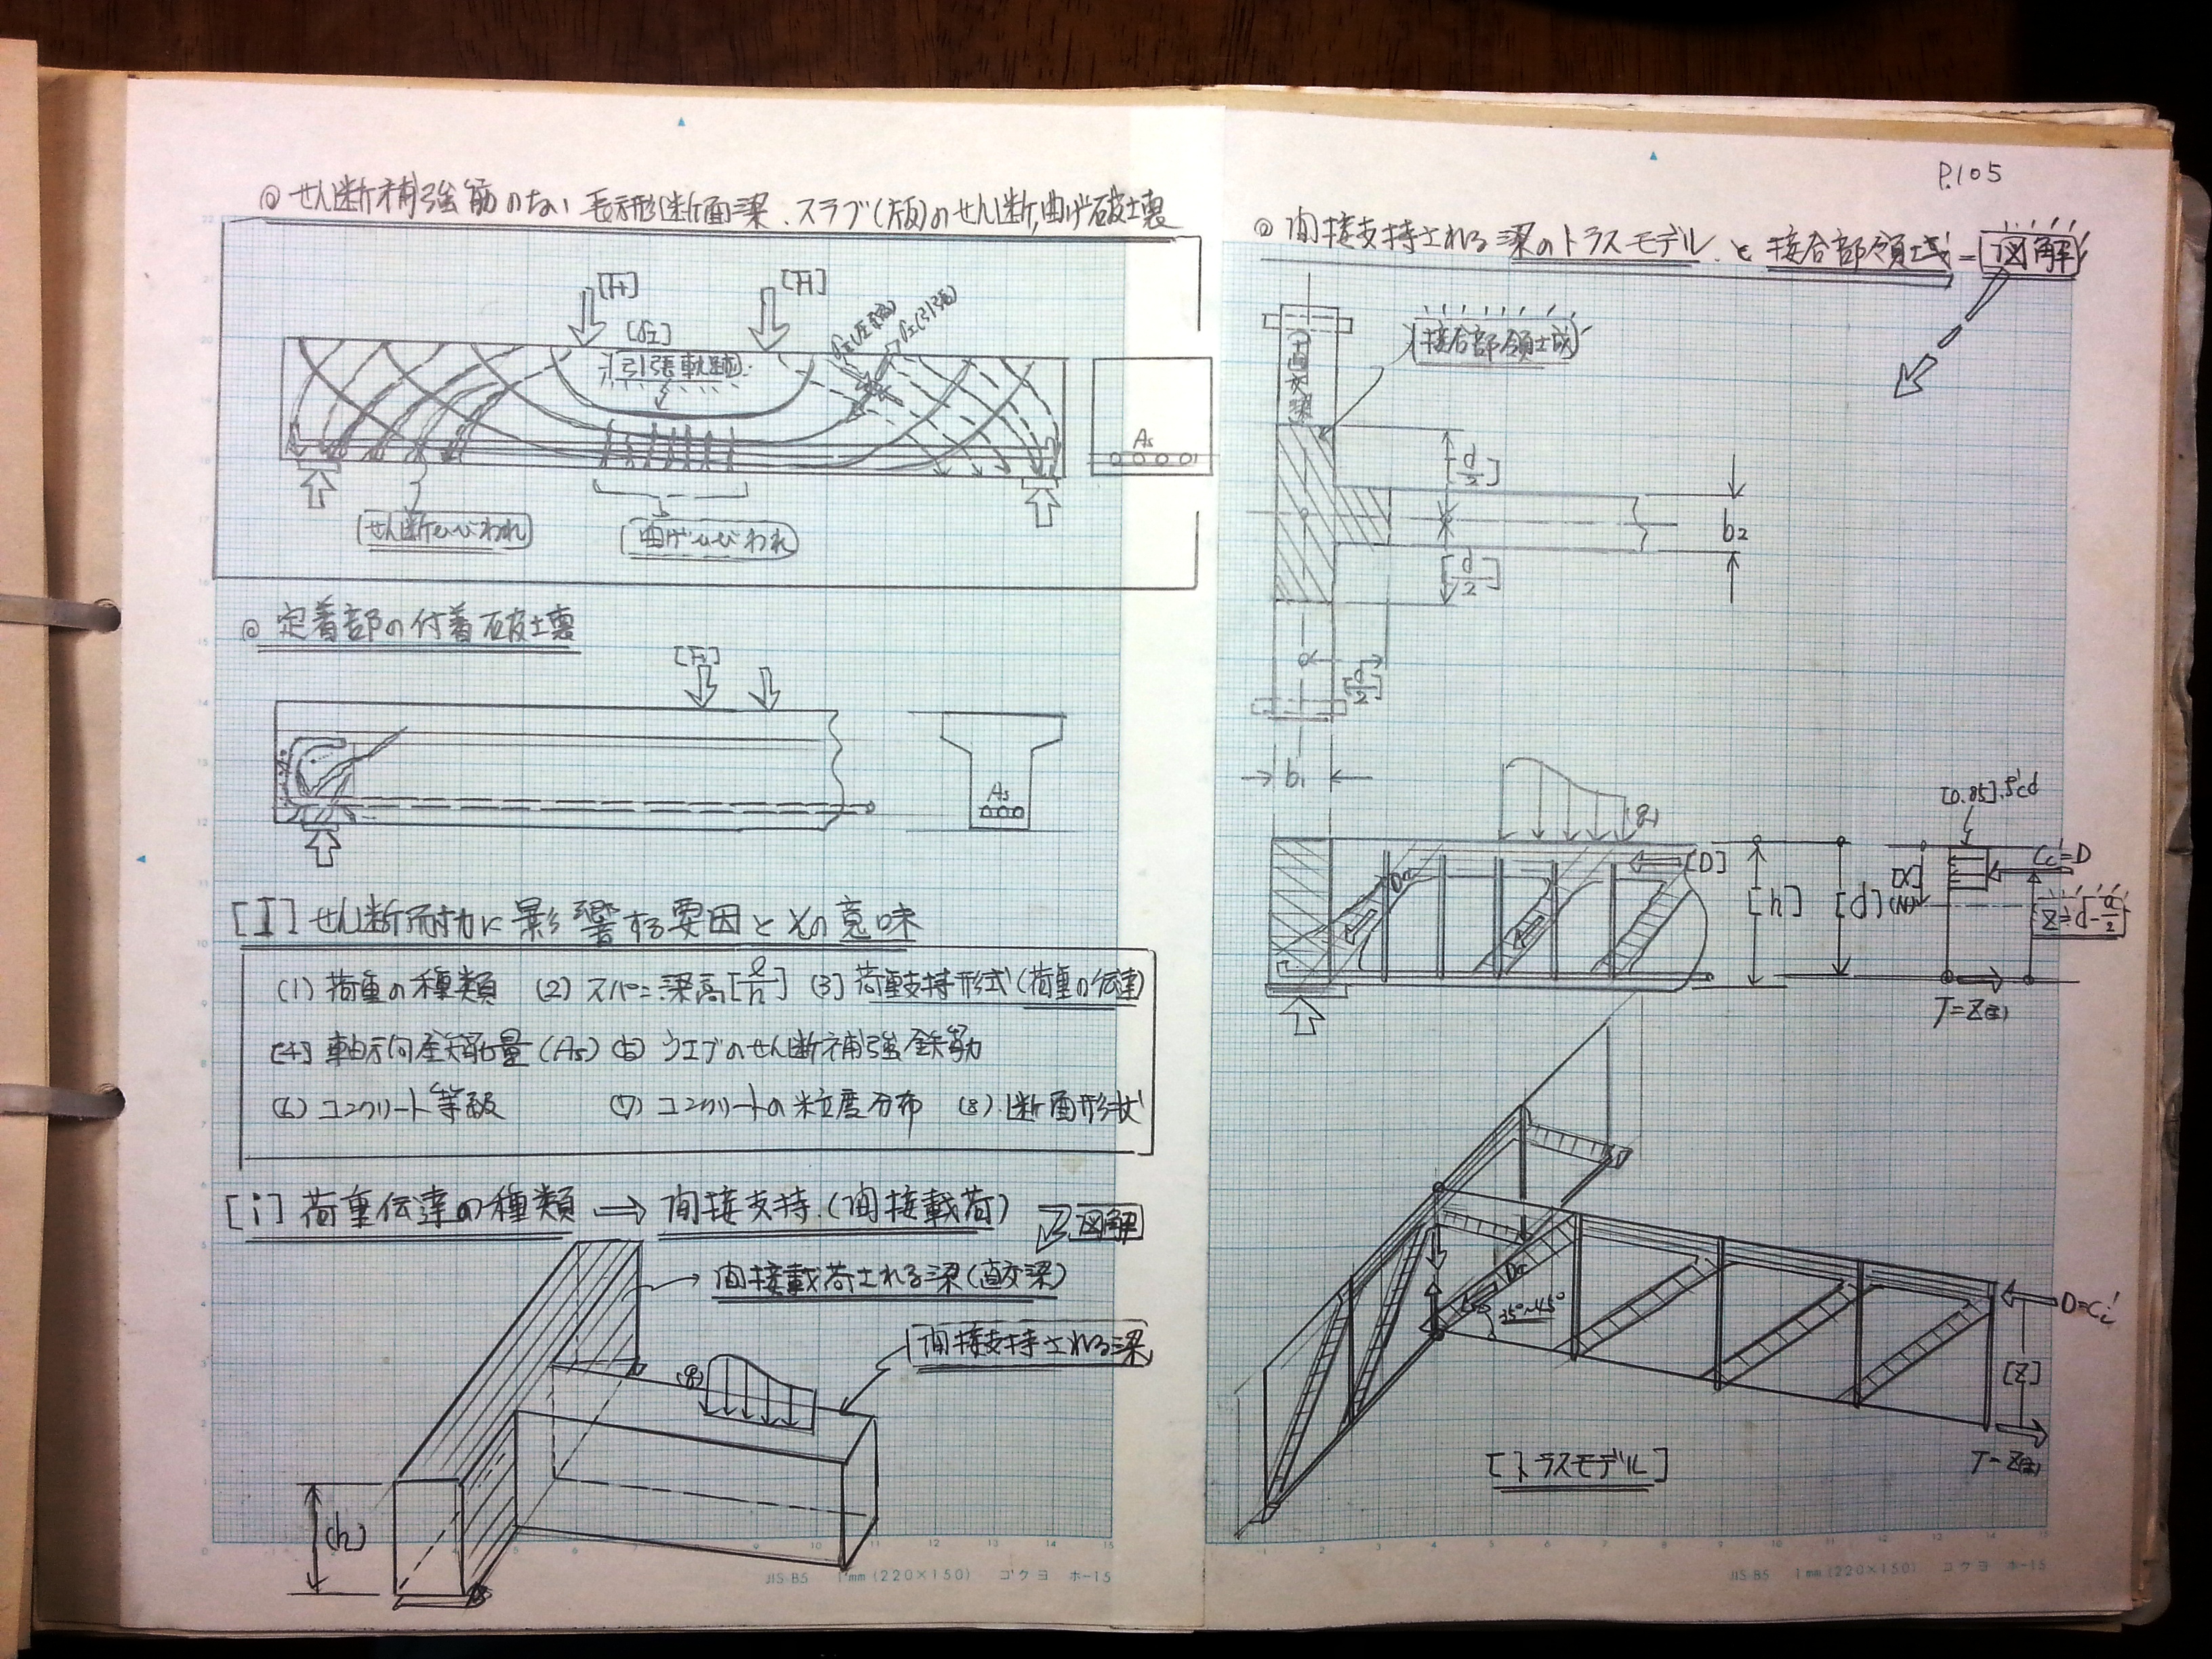 ◎ せん断補強筋のない長方形断面梁、スラブ(版)のせん断,曲げ破壊
[F] [F]
[σI]
引張軌跡
σII(圧縮)
σI(引張)
As
せん断ひびわれ
曲げひびわれ
◎ 定着部の付着破壊
[F]
As
[I] せん断耐力に影響する要因とその意味
(1) 荷重の種類 (2) スパン:梁高[ℓ/h] (3) 荷重支持形式(荷重の伝達)
[4] 軸方向鉄筋量(As) (5) ウエブのせん断補強鉄筋
(6) コンクリート等級 (7) コンクリートの粒度分布 (8) 断面形状
[i] 荷重伝達の種類 ⇒ 間接支持.(間接載荷) 図解
間接載荷される梁(直交梁)
間接支持される梁
(q)
(h)
JIS B5 1mm(220×150) コクヨ ホ-15
P.105
◎ 間接支持される梁のトラスモデル.と接合部領域-図解
接合部領域
直交梁
[d/2]
b2
[d/2]
[d/2]
b1
(q)
[0.85].f'cd
Dc
[D]
[h]
[d]
[x]
(N)
C'c=D
Z≒d-a/2
T=Z(s)
Dc
35°~45°
D=Cc'
[Z]
T=Z(s)
[トラスモデル]
JIS B5 1mm(220×150) コクヨ ホ-15